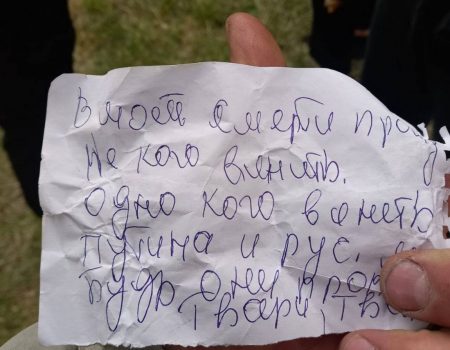 В моей смерти прошу
не кого винить.
одно кого винить
путина и рус.
Будь они прок
Твари, Тва